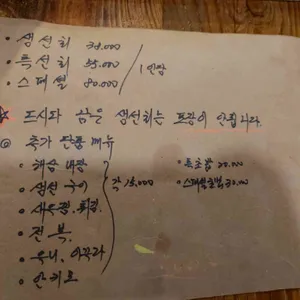 · 생선회 30.000
· 특선회 55.000
· 스페셜 80.000
1인당
※ 도시락 같은 생선회는 포장이 안됩니다.
◎ 추가 단품 메뉴
· 해삼 내장
· 생선 구이
· 새우, 튀김
· 전복
· 우니, 아구라
· 안키모
각 15,000
· 특초밥 20.000
· 스페셜초밥 30.000